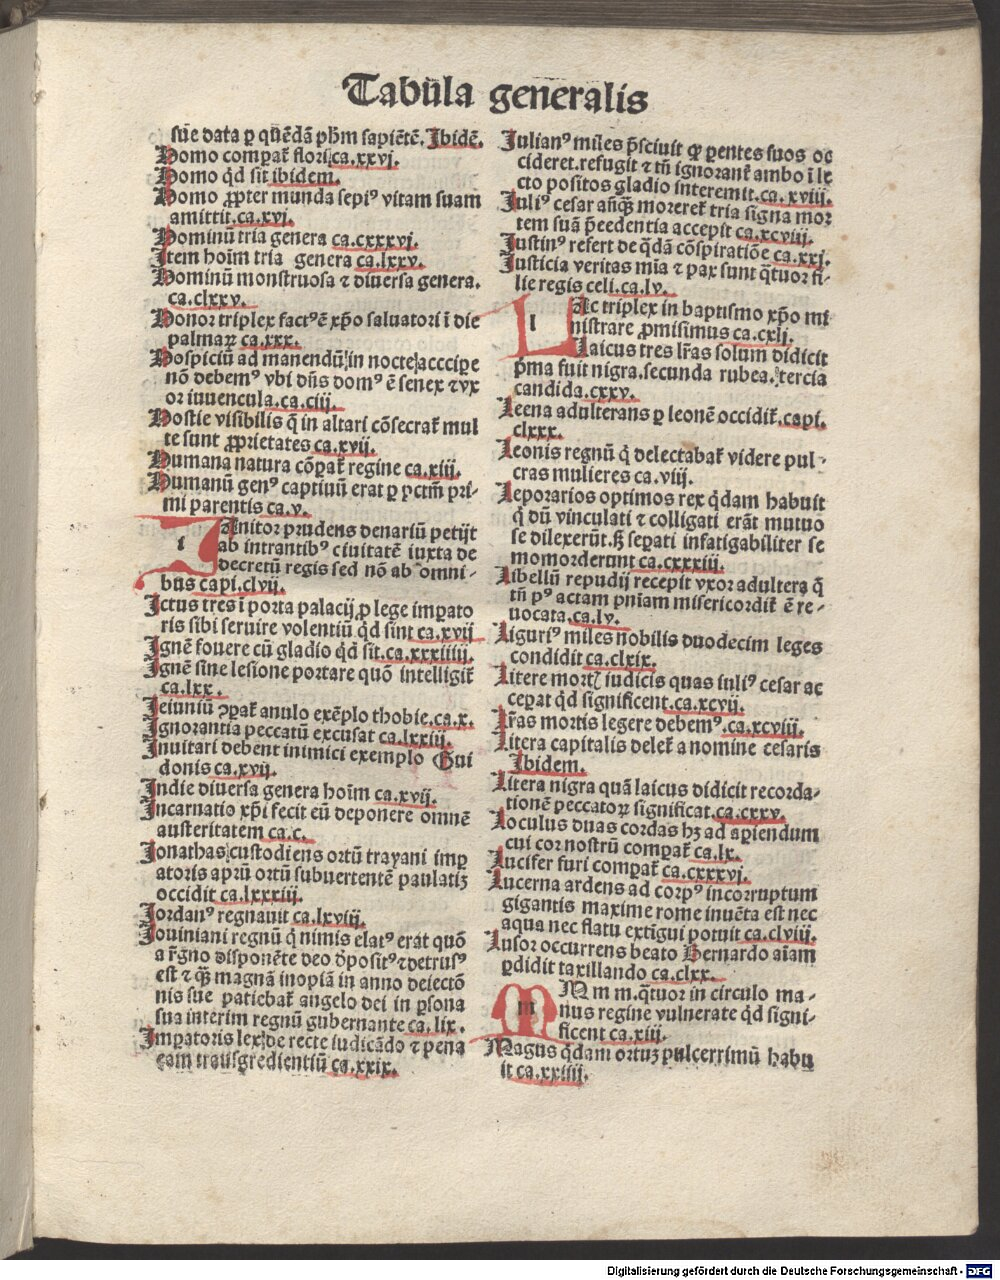 Tabula generalis
sue data ꝑ quẽdã phm sapiẽtẽ. Ibidẽ.
Homo comparat᷑ flori. ca. xxvj.
Homo qd sit ibidem.
Homo ꝓpter munda sepiꝰ vitam suam
amittit. ca. xvj.
Hominũ tria genera ca. cxxxvj.
Item hoĩm tria genera ca. lxxv.
Hominũ monstruosa ⁊ diuersa genera.
ca. clxxv.
Honor triplex factꝰ ẽ xp̄o saluatori ĩ die
palmaꝝ ca. xxx.
Hospiciũ ad manendũ in nocte acccipe
nõ debemꝰ vbi dñs domꝰ ẽ senex ⁊ vx
or iuuencula. ca. ciij.
Hostie visibilis q̃ in altari cõsecrat᷑ mul
te sunt ꝓprietates ca. xvij.
Humana natura cõpat᷑ regine ca. xiij.
Humanũ genꝰ captiuũ erat ꝑ pctm̃ pri-
mi parentis ca. v.
i Anitor prudens denariũ petijt
ab intrantibꝰ ciuitatẽ iuxta de
decretũ regis sed nõ ab omni-
bus capi. clvij.
Ictus tres ĩ porta palacij ꝓ lege imꝑato
ris sibi seruire volentiũ qd sint ca. xvij
Ignẽ fouere cũ gladio qd sit. ca. xxxiiiij.
Ignẽ sine lesione portare quõ intelligit᷑
ca. lxx.
Ieiuniũ ꝯꝑat᷑ anulo exẽplo thobie. ca. x.
Ignorantia peccatũ excusat ca. lxxiij.
Inuitari debent inimici exemplo Gui
donis ca. xvij.
Indie diuersa genera hoĩm ca. xvij.
Incarnatio xp̄i fecit eũ deponere omnẽ
austeritatem ca. c.
Ionathas custodiens ortũ trayani imꝑ
atoris aprũ ortũ subuertentẽ paulatiꝫ
occidit ca. lxxxiij.
Iordanꝰ regnauit ca. lxviij.
Iouiniani regnũ q̇ nimis elatꝰ erat quõ
a r̃gno disponẽte deo d̄positꝰ ⁊ detrusꝰ
est ⁊ qꝫ magnã inopiã in anno deiectõ
nis sue patiebat᷑ angelo dei in ꝑsona
sua interim regnũ gubernante ca. lix.
Imꝑatoris lex de recte iudicãdo ⁊ pena
eam transgredientiũ ca. xxix.
Iulianꝰ miles p̃sciuit ꝙ ꝑentes suos oc
cideret. refugit ⁊ tñ ignorant᷑ ambo ĩ le
cto positos gladio interemit. ca. xviij.
Iuliꝰ cesar añꝗꝫ moreret᷑ tria signa mor
tem suã p̃cedentia accepit ca. xcviij.
Iustinꝰ refert de qdã cõspiratiõe ca. xxj.
Iusticia veritas mĩa ⁊ pax sunt q̃tuor fi-
lie regis celi. ca. lv.
l Ac triplex in baptismo xp̄o mi
nistrare ꝓmisimus ca. cxlj.
Laicus tres lr̃as solum didicit
p̃ma fuit nigra. secunda rubea. tercia
candida. cxxv.
Leena adulterans ꝑ leonẽ occidit᷑. capi.
clxxx.
Leonis regnũ q̇ delectabat᷑ videre pul-
cras mulieres ca. viij.
Leporarios optimos rex qdam habuit
q̇ dũ vinculati ⁊ colligati erãt mutuo
se dilexerũt. sꝫ seꝑati infatigabiliter se
momorderunt ca. cxxxiij.
Libellũ repudij recepit vxor adultera q̃
tñ pꝰ actam pniam misericordit᷑ ẽ re-
uocata. ca. lv.
Liguriꝰ miles nobilis duodecim leges
condidit ca. clxix.
Litere mortꝭ iudicis quas iuliꝰ cesar ac
ceperat qd significent. ca. xcvij.
Lr̃as mortis legere debemꝰ. ca. xcviij.
Litera capitalis delet᷑ a nomine cesaris
Ibidem.
Litera nigra quã laicus didicit recorda-
tionẽ peccatoꝝ significat. ca. cxxv.
Loculus duas cordas hꝫ ad aꝑiendum
cui cor nostrũ comꝑat᷑ ca. lx.
Lucifer furi comꝑat᷑ ca. cxxxvj.
Lucerna ardens ad corpꝰ incorruptum
gigantis maxime rome inuẽta est nec
aqua nec flatu extĩgui potuit ca. clviij.
Lusor occurrens beato Bernardo aĩam
ꝑdidit taxillando ca. clxx.
m M m m. q̃tuor in circulo ma-
nus regine vulnerate qd signi-
ficent ca. xiij.
Magus qdam ortuꝫ pulcerrimũ habu
it ca. xxiiij.
Digitalisierung gefördert durch die Deutsche Forschungsgemeinschaft - DFG